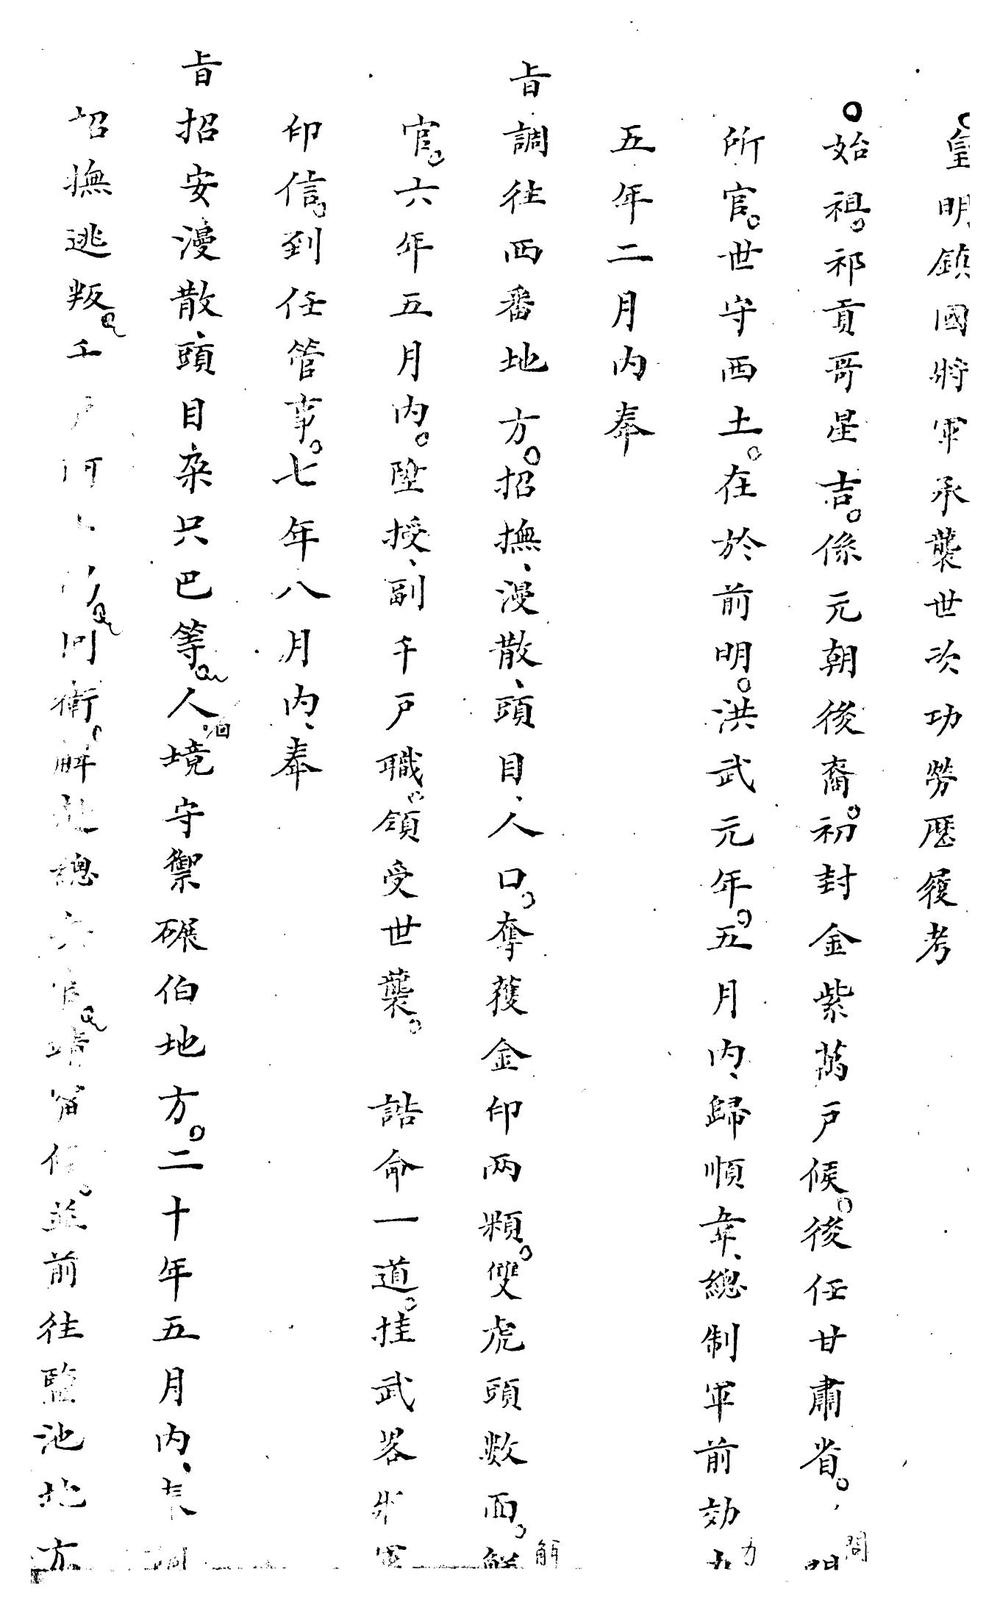 皇明鎮國將軍承襲世次功勞歷履考
始祖祁貢哥星吉係元朝後裔初封金紫萬戶候後任甘肅省問
所官世守西土在於前明洪武元年五月內歸順韋總制軍前効力
五年二月內奉
旨調往西番地方招撫漫散頭目人口奪獲金印两顆雙虎頭數面解
官六年五月內陞授副千戶職領受世襲 誥命一道挂武畧
印信到任管事七年八月內奉
旨招安漫散頭目朶只巴等人洎境守禦碾伯地方二十年五月內
招撫逃叛 回衛解 總 並前往盬池地方